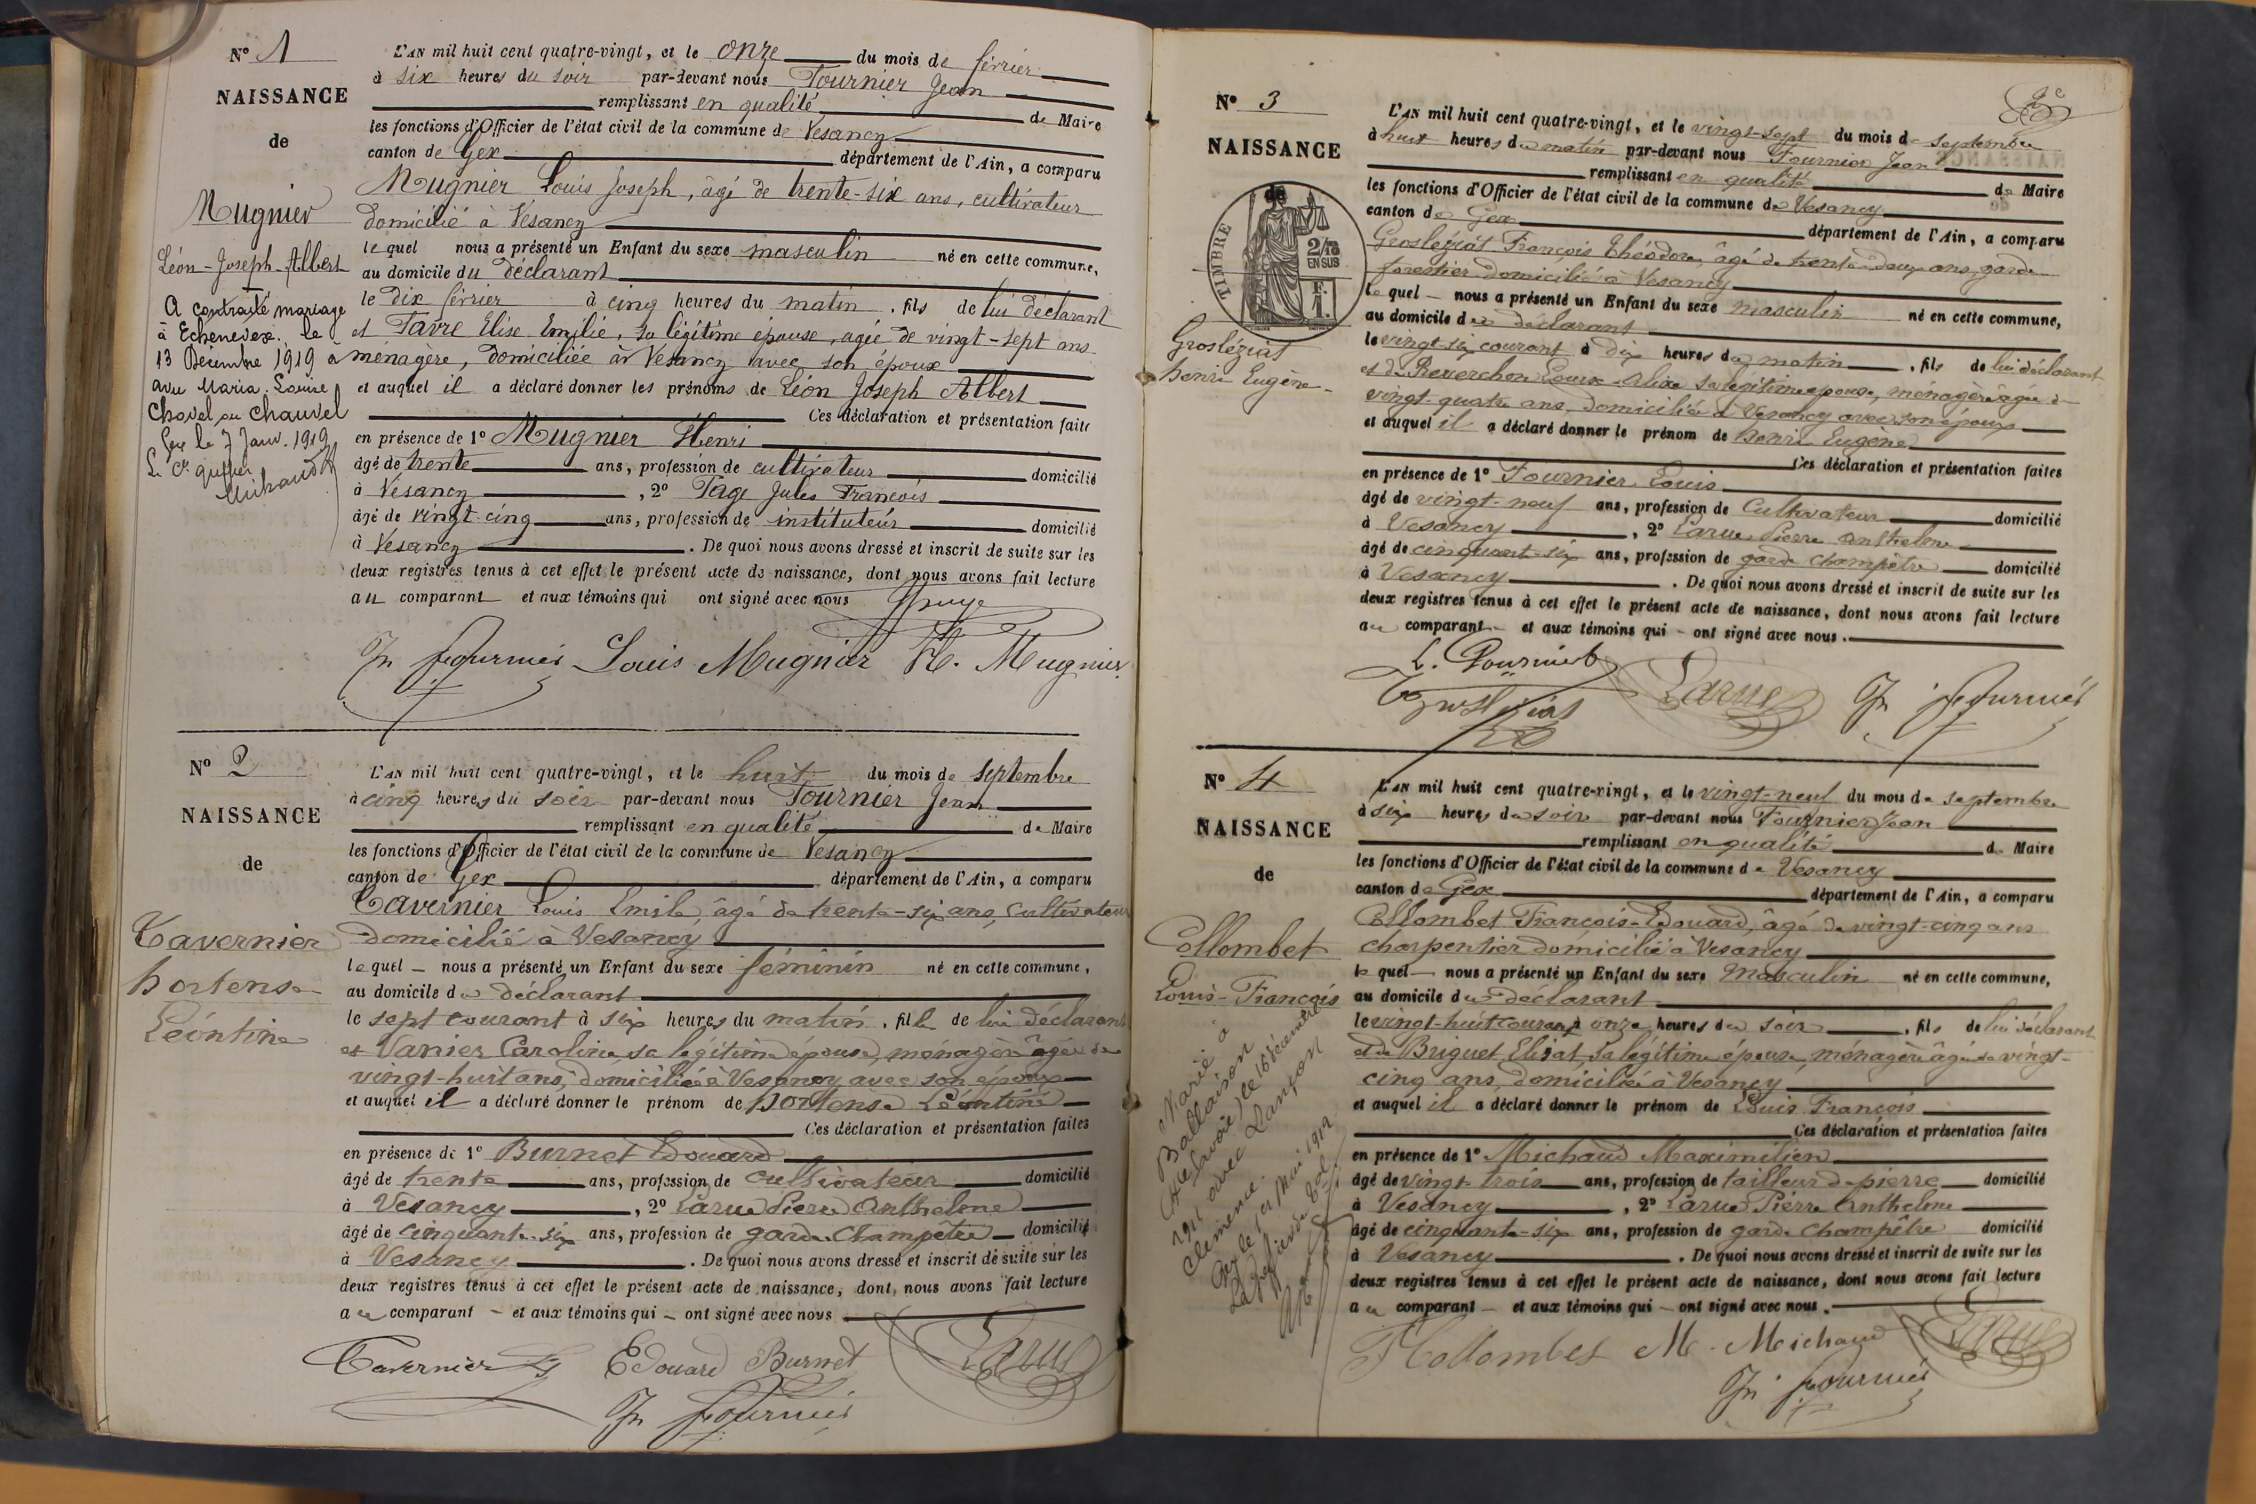 N° 1
NAISSANCE
de
Mugnier
Léon-Joseph-Albert
A contracté mariage
à Echenevex le
13 Décembre 1919
avec Maria Louise
Chovel ou Chauvel
Gex le 7 Janv. 1919
L'AN mil huit cent quatre-vingt, et le onze du mois de février
à six heures du soir par-devant nous Fournier Jean
remplissant en qualité de Maire
les fonctions d'Officier de l'état civil de la commune de Vesancy
canton de Gex département de l'Ain, a comparu
Mugnier Louis Joseph, âgé de trente-six ans, cultivateur
domicilié à Vesancy
le quel nous a présenté un Enfant du sexe masculin né en cette commune,
au domicile du déclarant
le dix février à cinq heures du matin, fils de lui déclarant
et Favre Elise Emilie, sa légitime épouse, agée de vingt-sept ans
ménagère, domiciliée à Vesancy avec son époux
et auquel il a déclaré donner les prénoms de Léon Joseph Albert
Ces déclaration et présentation faites
en présence de 1° Mugnier Henri
âgé de trente ans, profession de cultivateur domicilié
à Vesancy, 2° Page Jules François
âgé de vingt-cinq ans, profession de instituteur domicilié
à Vesancy. De quoi nous avons dressé et inscrit de suite sur les
deux registres tenus à cet effet le présent acte de naissance, dont nous avons fait lecture
au comparant et aux témoins qui ont signé avec nous
Jn Fournier Louis Mugnier H. Mugnier
N° 2
NAISSANCE
de
Tavernier
hortense
Léontine
L'AN mil huit cent quatre-vingt, et le huit du mois de septembre
à cinq heures du soir par-devant nous Fournier Jean
remplissant en qualité de Maire
les fonctions d'Officier de l'état civil de la commune de Vesancy
canton de Gex département de l'Ain, a comparu
Tavernier Louis Emile, âgé de trente-six ans, cultivateur
domicilié à Vesancy
le quel nous a présenté un Enfant du sexe féminin né en cette commune,
au domicile du déclarant
le sept courant à six heures du matin, fille de lui déclarant
et Vanier Caroline sa légitime épouse, ménagère âgée de
vingt-huit ans, domiciliée à Vesancy avec son époux
et auquel il a déclaré donner le prénom de hortense Léontine
Ces déclaration et présentation faites
en présence de 1° Burnet Edouard
âgé de trente ans, profession de cultivateur domicilié
à Vesancy, 2° Larue Pierre Anthelme
âgé de cinquante-six ans, profession de garde champêtre domicilié
à Vesancy. De quoi nous avons dressé et inscrit de suite sur les
deux registres tenus à cet effet le présent acte de naissance, dont nous avons fait lecture
au comparant et aux témoins qui ont signé avec nous
Tavernier Ls Edouard Burnet Larue
Jn Fournier
N° 3
NAISSANCE
de
TIMBRE
2/10
EN SUS
F.
1
Grosléziat
henri Eugène
L'AN mil huit cent quatre-vingt, et le vingt-sept du mois de septembre
à huit heures du matin par-devant nous Fournier Jean
remplissant en qualité de Maire
les fonctions d'Officier de l'état civil de la commune de Vesancy
canton de Gex département de l'Ain, a comparu
Grosléziat François Théodore, âgé de trente-deux ans, garde
forestier domicilié à Vesancy
le quel nous a présenté un Enfant du sexe masculin né en cette commune,
au domicile du déclarant
le vingt-six courant à dix heures du matin, fils de lui déclarant
et de Reverchon Louise Alixe sa légitime épouse, ménagère âgée de
vingt-quatre ans, domiciliée à Vesancy avec son époux
et auquel il a déclaré donner le prénom de henri Eugène
Ces déclaration et présentation faites
en présence de 1° Fournier Louis
âgé de vingt-neuf ans, profession de Cultivateur domicilié
à Vesancy, 2° Larue Pierre anthelme
âgé de cinquante-six ans, profession de garde champêtre domicilié
à Vesancy. De quoi nous avons dressé et inscrit de suite sur les
deux registres tenus à cet effet le présent acte de naissance, dont nous avons fait lecture
au comparant et aux témoins qui ont signé avec nous.
L. Fournier
Grosléziat Larue Jn Fournier
N° 4
NAISSANCE
de
Collombet
Louis-François
Marié à
Ballaison
(Hte Savoie) le 16 décembre
1911 avec Lançon
Clémence.
L'AN mil huit cent quatre-vingt, et le vingt-neuf du mois de septembre
à six heures du soir par-devant nous Fournier Jean
remplissant en qualité de Maire
les fonctions d'Officier de l'état civil de la commune de Vesancy
canton de Gex département de l'Ain, a comparu
Collombet François-Edouard, âgé de vingt-cinq ans
charpentier domicilié à Vesancy
le quel nous a présenté un Enfant du sexe masculin né en cette commune,
au domicile du déclarant
le vingt-huit courant à onze heures du soir, fils de lui déclarant
et de Briguet Elisat, sa légitime épouse, ménagère âgée de vingt-
cinq ans, domiciliée à Vesancy
et auquel il a déclaré donner le prénom de Louis François
Ces déclaration et présentation faites
en présence de 1° Michaud Maximilien
âgé de vingt-trois ans, profession de tailleur de pierre domicilié
à Vesancy, 2° Larue Pierre Anthelme
âgé de cinquante-six ans, profession de garde champêtre domicilié
à Vesancy. De quoi nous avons dressé et inscrit de suite sur les
deux registres tenus à cet effet le présent acte de naissance, dont nous avons fait lecture
au comparant et aux témoins qui ont signé avec nous.
F Collombet M. Michaud Larue
Jn Fournier